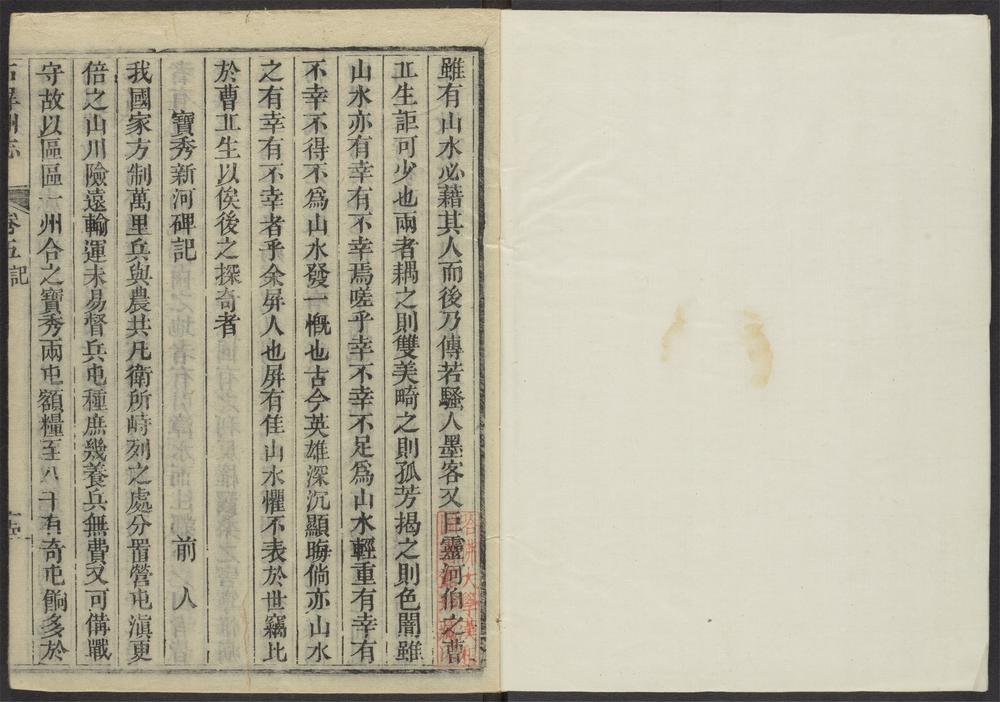 雖有山水必藉其人而後乃傳若騷人墨客又巨靈河伯之曹
丘生詎可少也兩者耦之則雙美畸之則孤芳揭之則色闇雖
山水亦有幸有不幸焉嗟乎幸不幸不足爲山水輕重有幸有
不幸不得不爲山水發一慨也古今英雄深沉顯晦倘亦山水
之有幸有不幸者乎余屏人也屏有佳山水懼不表於世竊比
於曹丘生以俟後之探奇者
寶秀新河碑記 前人
我國家方制萬里兵與農共凡衛所崎列之處分置營屯滇更
倍之山川險遠輸運未易督兵屯種庶幾養兵無費又可備戰
守故以區區一州合之寶秀兩屯額糧至八千有奇屯餉多於
石屏州志 卷五記